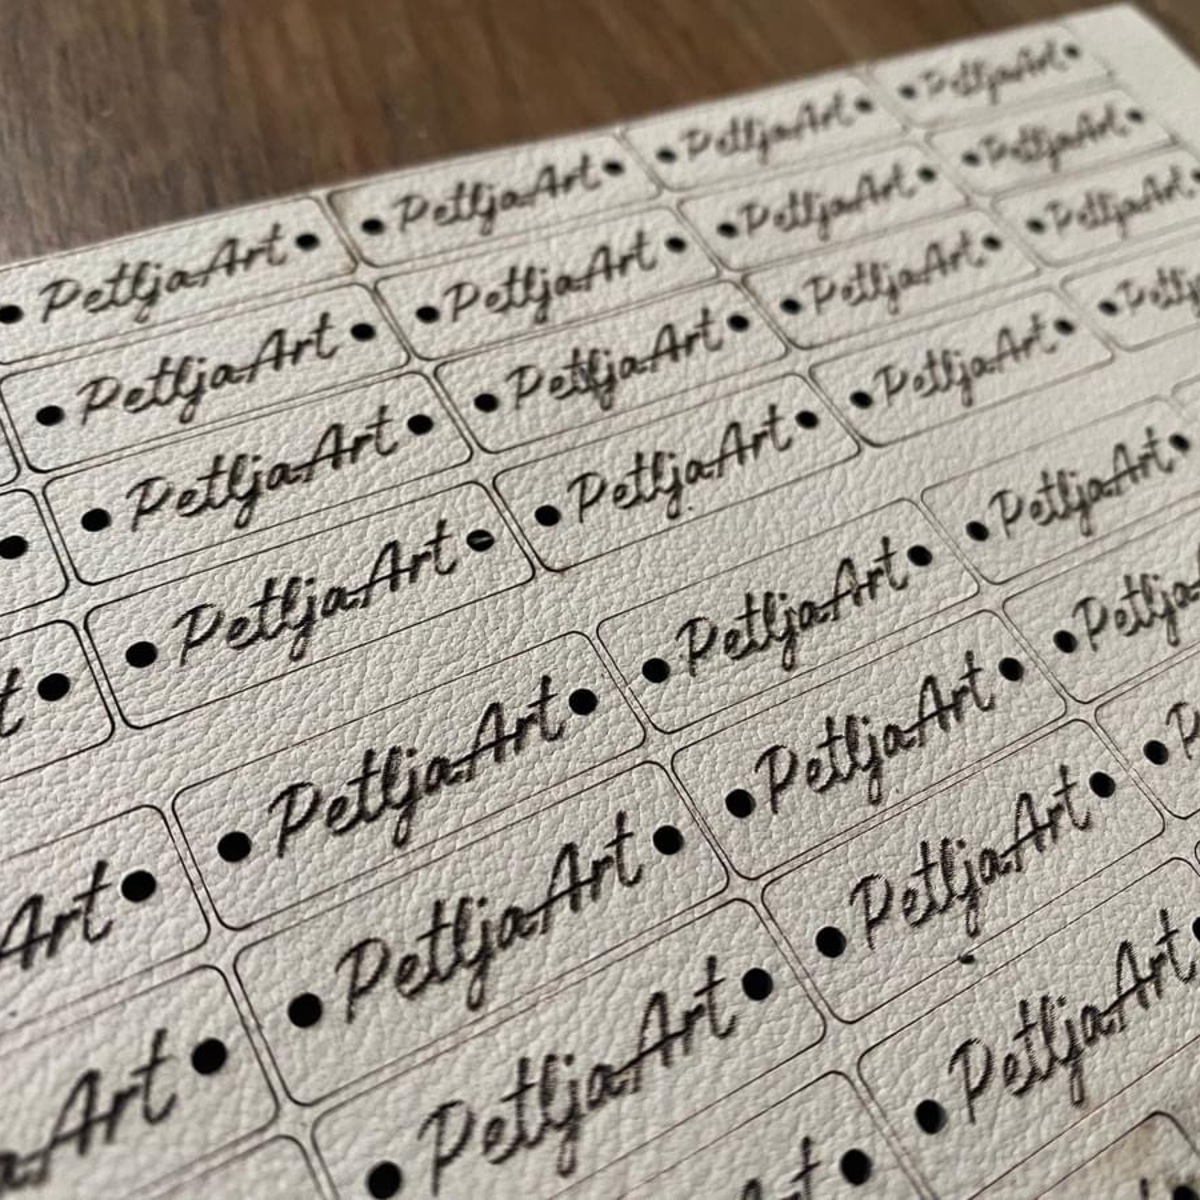 PetljaArt PetljaArt PetljaArt PetljaArt
PetljaArt PetljaArt PetljaArt PetljaArt
PetljaArt PetljaArt PetljaArt PetljaArt
PetljaArt PetljaArt PetljaArt
PetljaArt PetljaArt PetljaArt
Art PetljaArt PetljaArt
Art PetljaArt PetljaArt
PetljaArt PetljaArt